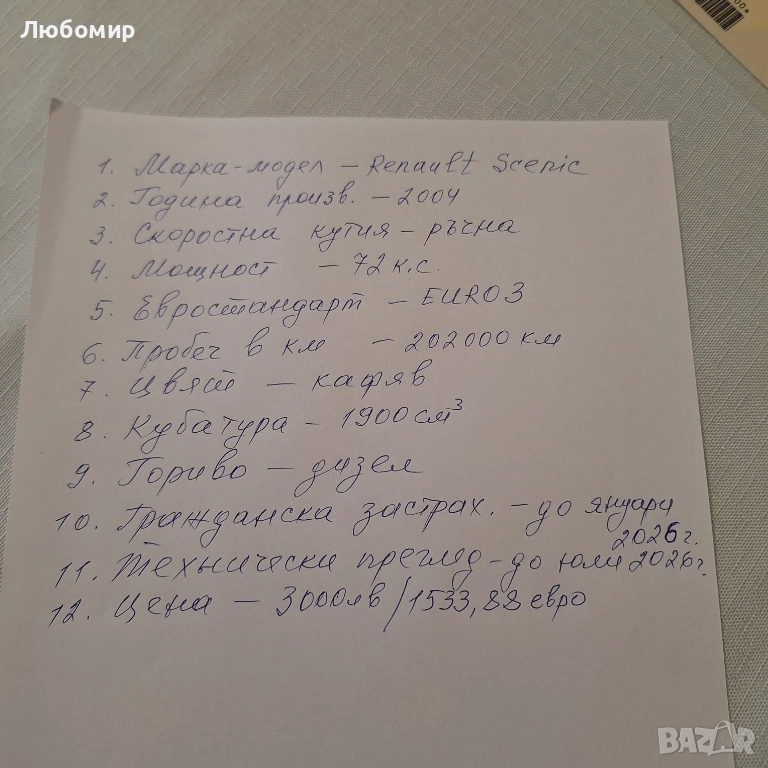 Любомир
1. Марка-модел – Renault Scenic
2. Година произв. – 2004
3. Скоростна кутия – ръчна
4. Мощност – 72 к.с.
5. Евростандарт – EURO 3
6. Пробег в км – 202000 км
7. Цвят – кафяв
8. Кубатура – 1900 см³
9. Гориво – дизел
10. Гражданска застрах. – до януари
2026 г.
11. Технически преглед – до юли 2026 г.
12. Цена – 3000лв / 1533,88 евро
BAZAR